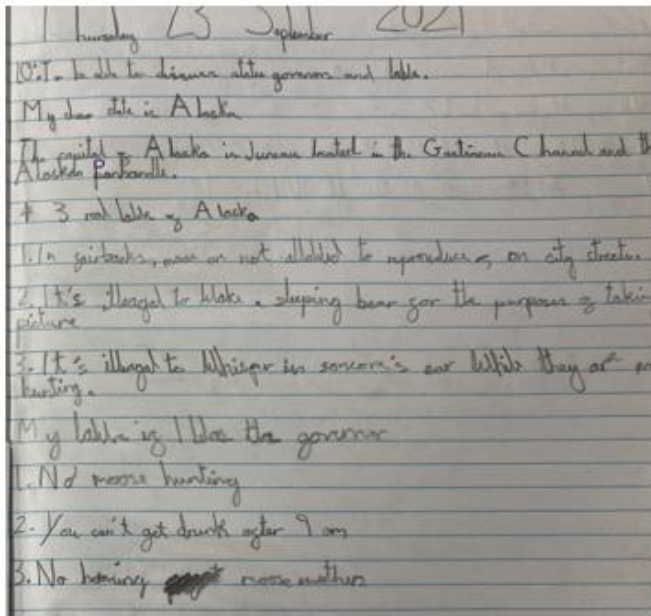 Thursday 23 September 2021
LO:T- be able to discuss state governors and lables.
My chosen state is Alaska
The capital of Alaska is Juneau located in the Gastineau Channel and the
Alaskan Panhandle.
# 3 real lables of Alaska
1. In fairbanks, moose are not allowed to reproduce on city streets.
2. It's illegal to wake a sleeping bear for the purposes of taking
picture
3. It's illegal to whisper in someone's ear while they are
hunting.
My lables if I was the governor
1. No moose hunting
2. You can't get drunk after 9 am
3. No harming moose mothers